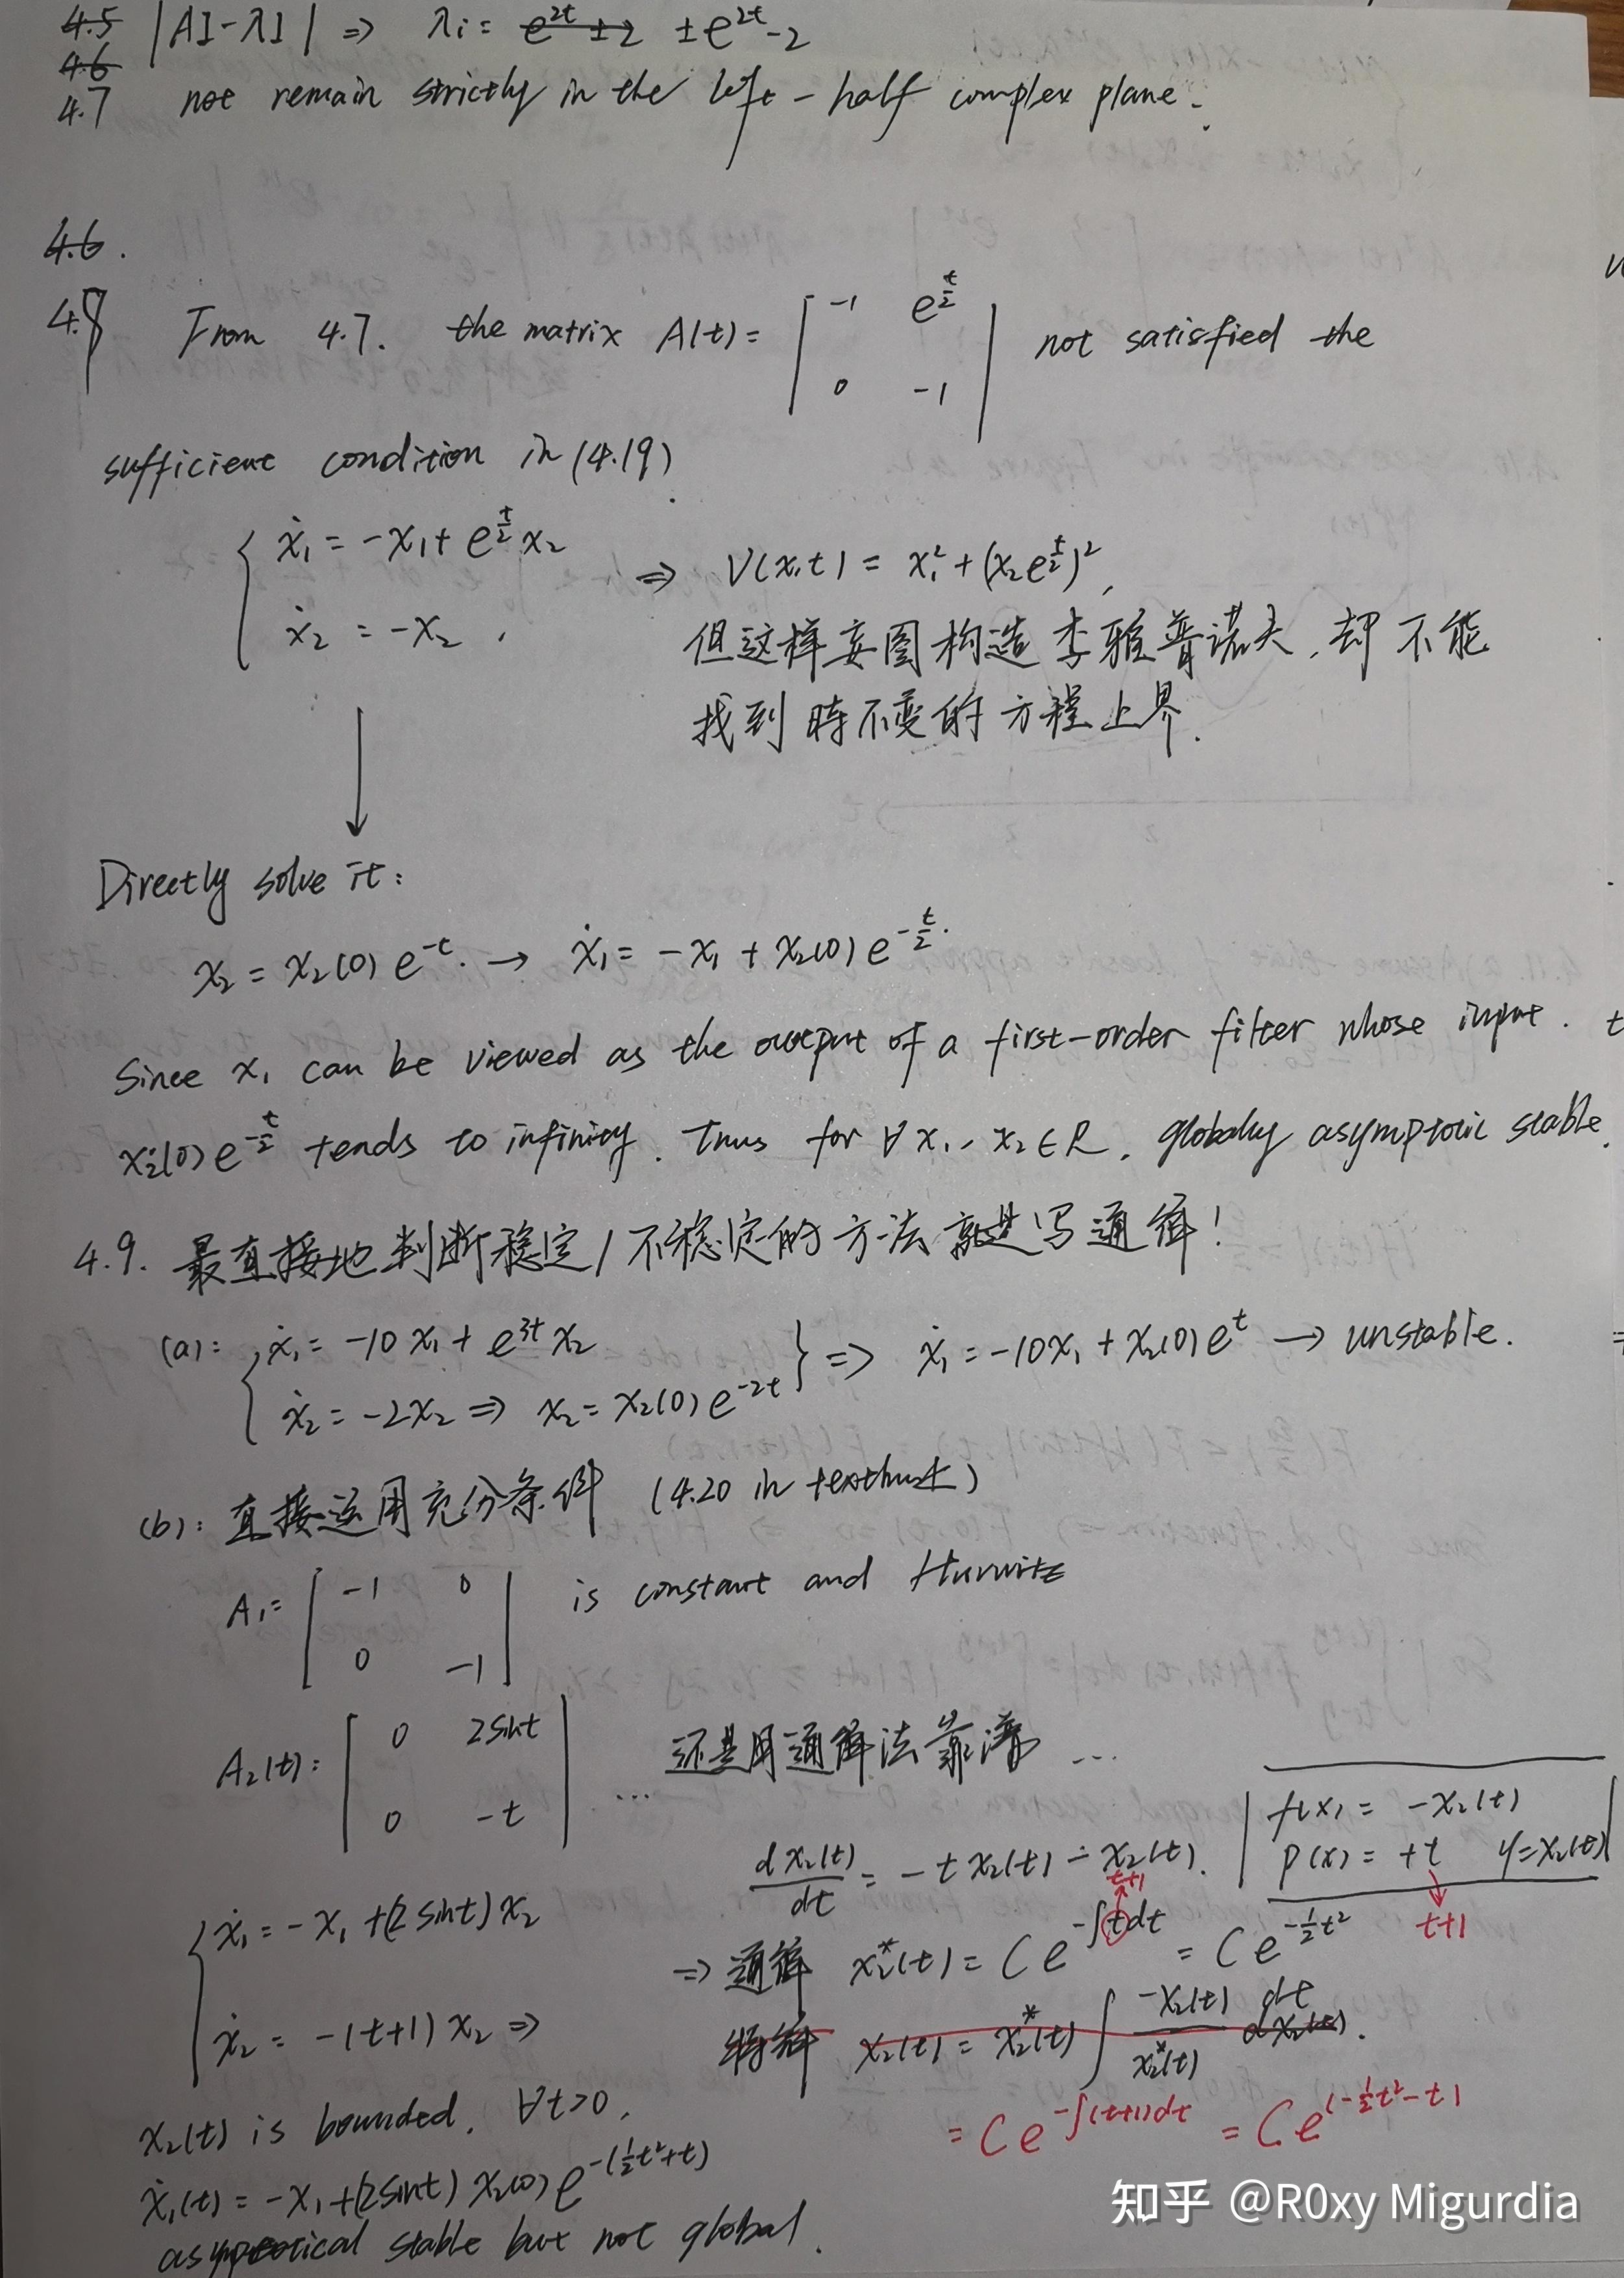 4.5 |AI-λI| => λi = e^{2t}±2 ±e^{2t}-2
4.6
4.7 not remain strictly in the left-half complex plane.
4.6.
4.8 From 4.7. the matrix A(t)= | -1 e^{t/2} | not satisfied the
0 -1
sufficient condition in (4.19).
{ ẋ₁ = -x₁ + e^{t/2} x₂
=> V(x,t) = x₁² + (x₂e^{t/2})²,
ẋ₂ = -x₂ .
但这样妄图构造李雅普诺夫,却不能
找到时不变的方程上界.
↓
Directly solve it:
x₂ = x₂(0) e^{-t}. → ẋ₁ = -x₁ + x₂(0) e^{-t/2}.
Since x₁ can be viewed as the output of a first-order filter whose input.
x₂(0) e^{-t/2} tends to infinity. Thus for ∀ x₁, x₂ ∈ R, globally asymptotic stable.
4.9. 最直接地判断稳定/不稳定的方法就是写通解!
(a): { ẋ₁ = -10x₁ + e^{3t} x₂
ẋ₂ = -2x₂ => x₂ = x₂(0) e^{-2t} } => ẋ₁ = -10x₁ + x₂(0) e^t → unstable.
(b): 直接运用充分条件 (4.20 in textbook)
A₁ = | -1 0 | is constant and Hurwitz
0 -1
A₂(t): | 0 2sint | 还是用通解法靠谱 ...
0 -t ...
| f(x) = -x₂(t)
p(x) = +t y=x₂(t) |
t+1
dx₂(t)/dt = -t x₂(t) - x₂(t).
t+1
{ ẋ₁ = -x₁ + (2sint) x₂
=> 通解 x₂*(t) = C e^{-∫t dt} = C e^{-½t²}
ẋ₂ = -(t+1) x₂ =>
特解 x₂(t) = x₂*(t) ∫ -x₂(t)/x₂*(t) dt dx₂(t).
= C e^{-∫(t+1)dt} = C e^{(-½t²-t)}
x₂(t) is bounded, ∀t>0,
ẋ₁(t) = -x₁ + (2sint) x₂(0) e^{-(½t²+t)}
asymptotical stable but not global.
知乎 @R0xy Migurdia